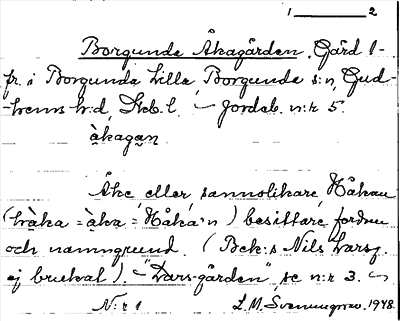 1 ____ 2
Borgunda Åkagården. Gård 1-
fr. i Borgunda Lilla, Borgunda s:n, Gud-
hems h:d, Skab. l. ~ Jordeb. n:r 5.
àkagan
Åke, eller sannolikare, Håkan
(hàka = àka = Håka'n) besittare fordom
och namngrund. (Besk:s Nils Larsg.
ej brukal). ~ "Lars-gården", se n:r 3. ~
N:r 1 L. M. Svenungsson. 1948.